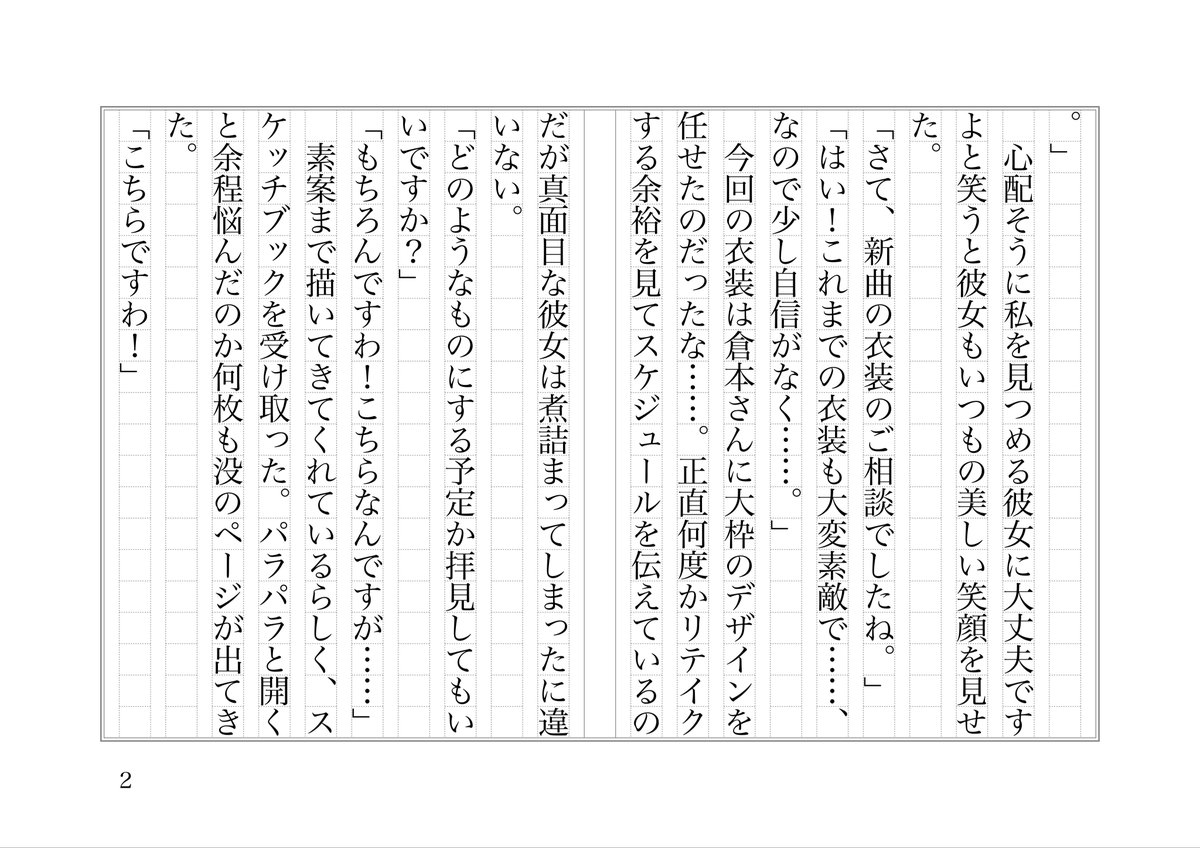 。」
　心配そうに私を見つめる彼女に大丈夫です
よと笑うと彼女もいつもの美しい笑顔を見せ
た。
「さて、新曲の衣装のご相談でしたね。」
「はい！これまでの衣装も大変素敵で……、
なので少し自信がなく……。」
　今回の衣装は倉本さんに大枠のデザインを
任せたのだったな……。正直何度かリテイク
する余裕を見てスケジュールを伝えているの
だが真面目な彼女は煮詰まってしまったに違
いない。
「どのようなものにする予定か拝見してもい
いですか？」
「もちろんですわ！こちらなんですが……」
　素案まで描いてきてくれているらしく、ス
ケッチブックを受け取った。パラパラと開く
と余程悩んだのか何枚も没のページが出てき
た。
「こちらですわ！」
2